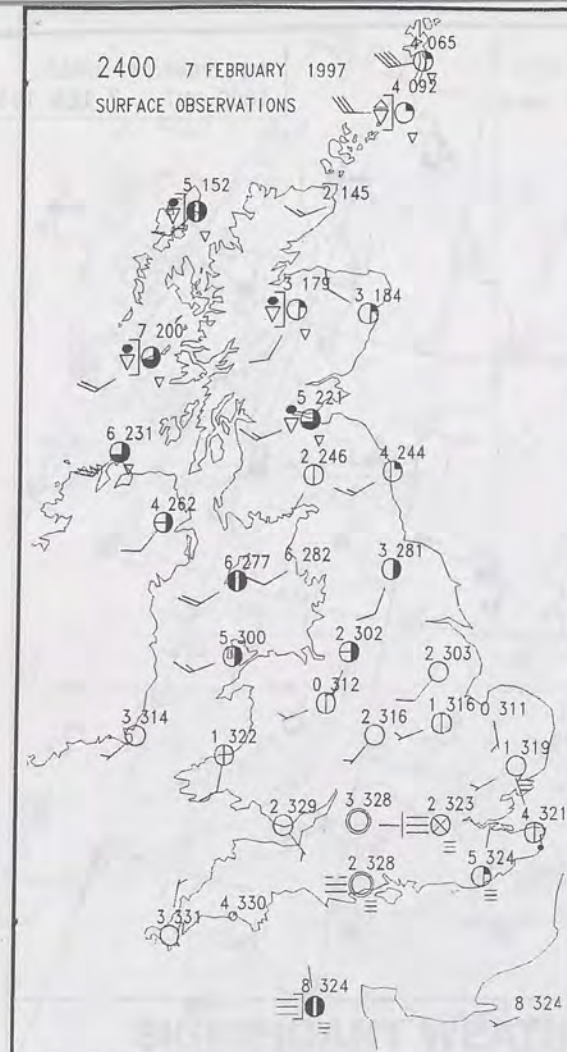 4 065
2400 7 FEBRUARY 1997
4 092
SURFACE OBSERVATIONS
5 152
2 145
3 179
3 184
7 200
5 221
6 231
2 246
4 244
4 262
6 277
6 282
3 281
5 300
2 302
2 303
0 312
3 314
1 316
0 311
2 316
1 322
1 319
2 329
3 328
2 323
4 321
5 324
2 328
4 330
3 331
8 324
8 324